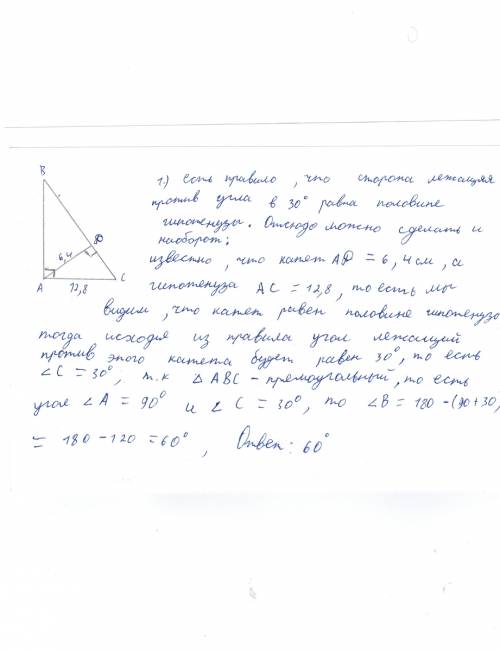 B
6,4
D
A
12,8
C
1.) есть правило, что сторона лежащяя
против угла в 30° равна половине
гипотенузы. Отсюдо можно сделать и
наоборот;
известно, что катет AD = 6,4 см, а
гипотенуза AC = 12,8, то есть мы
видим, что катет равен половине гипотенузо
тогда исходя из правила угол лежащий
против этого катета будет равен 30°, то есть
∠C = 30°, т.к △ABC - прямоугольный, то есть
угол ∠A = 90° и ∠C = 30°, то ∠B = 180 - (90+30)
= 180 - 120 = 60°, Ответ: 60°